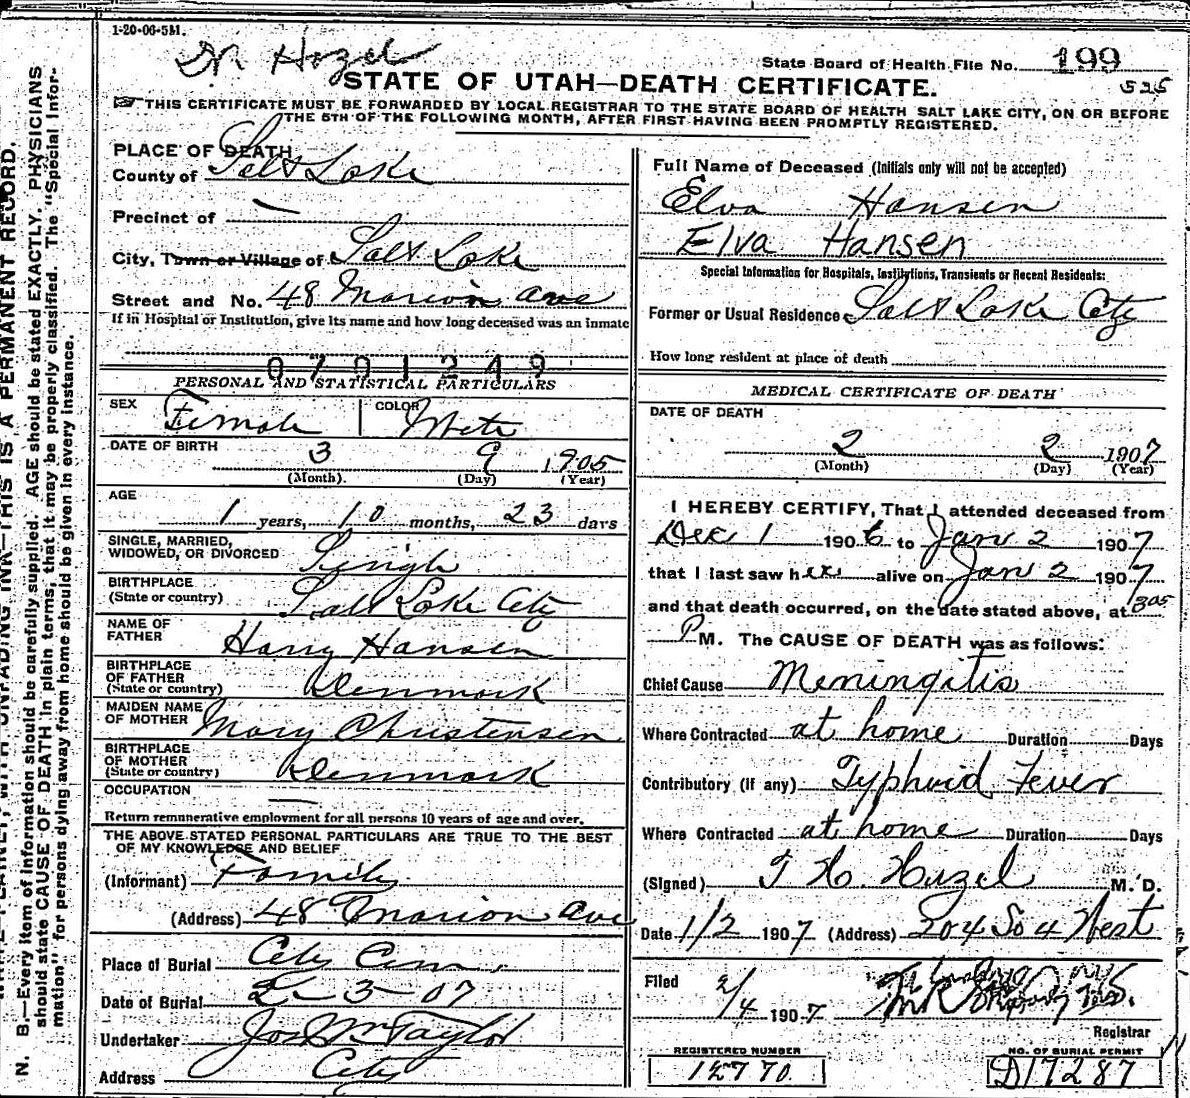 1-20-06-5M.
Hazel
State Board of Health File No. 199
STATE OF UTAH—DEATH CERTIFICATE.
525
☞ THIS CERTIFICATE MUST BE FORWARDED BY LOCAL REGISTRAR TO THE STATE BOARD OF HEALTH SALT LAKE CITY, ON OR BEFORE
THE 5TH OF THE FOLLOWING MONTH, AFTER FIRST HAVING BEEN PROMPTLY REGISTERED.
PLACE OF DEATH
County of Salt Lake
Precinct of —
City, Town or Village of Salt Lake
Street and No. 48 Marion Ave
If in Hospital or Institution, give its name and how long deceased was an inmate
0701249
PERSONAL AND STATISTICAL PARTICULARS
SEX Female COLOR White
DATE OF BIRTH 3 9 1905
(Month). (Day) (Year)
AGE 1 years, 10 months, 23 days
SINGLE, MARRIED,
WIDOWED, OR DIVORCED Single
BIRTHPLACE
(State or country) Salt Lake City
NAME OF
FATHER Harry Hansen
BIRTHPLACE
OF FATHER
(State or country) Denmark
MAIDEN NAME
OF MOTHER Mary Christensen
BIRTHPLACE
OF MOTHER
(State or country) Denmark
OCCUPATION —
Return remunerative employment for all persons 10 years of age and over.
THE ABOVE STATED PERSONAL PARTICULARS ARE TRUE TO THE BEST
OF MY KNOWLEDGE AND BELIEF
(Informant) Family
(Address) 48 Marion Ave
Place of Burial City Cem.
Date of Burial 2-3-07
Undertaker Jos Wm Taylor
Address City
Full Name of Deceased (Initials only will not be accepted)
Elva Hansen
Elva Hansen
Special Information for Hospitals, Institutions, Transients or Recent Residents:
Former or Usual Residence Salt Lake City
How long resident at place of death
MEDICAL CERTIFICATE OF DEATH
DATE OF DEATH
2 2 1907
(Month) (Day) (Year)
I HEREBY CERTIFY, That I attended deceased from
Dec 1 1906 to Jan 2 1907
that I last saw her alive on Jan 2 1907
and that death occurred, on the date stated above, at 305
P M. The CAUSE OF DEATH was as follows:
Chief Cause Meningitis
Where Contracted at home Duration Days
Contributory (if any) Typhoid Fever
Where Contracted at home Duration Days
(Signed) T H. Hazel M. D.
Date 1/2 1907 (Address) 204 So 4 West
Filed 2/4 1907
Registrar
REGISTERED NUMBER
NO. OF BURIAL PERMIT
D17287
N. B.—Every item of information should be carefully supplied. AGE should be stated EXACTLY. PHYSICIANS
should state CAUSE OF DEATH in plain terms, that it may be properly classified. The "Special Infor-
mation" for persons dying away from home should be given in every instance.
THIS IS A PERMANENT RECORD.